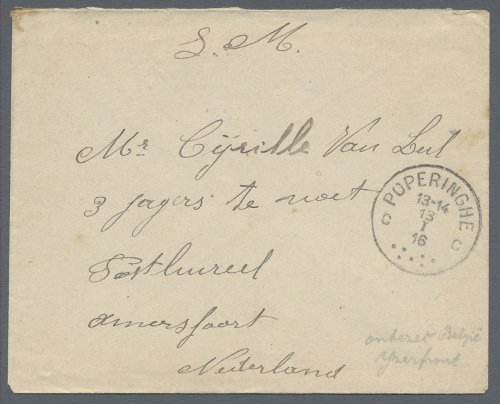 S. M.
Mr Cyrille Van Buil
3 jagers te voet
Posthureel
Amersfoort
Nederland
POPERINGHE
13-14
13
I
16
C C
onbezet België
Yzerfront